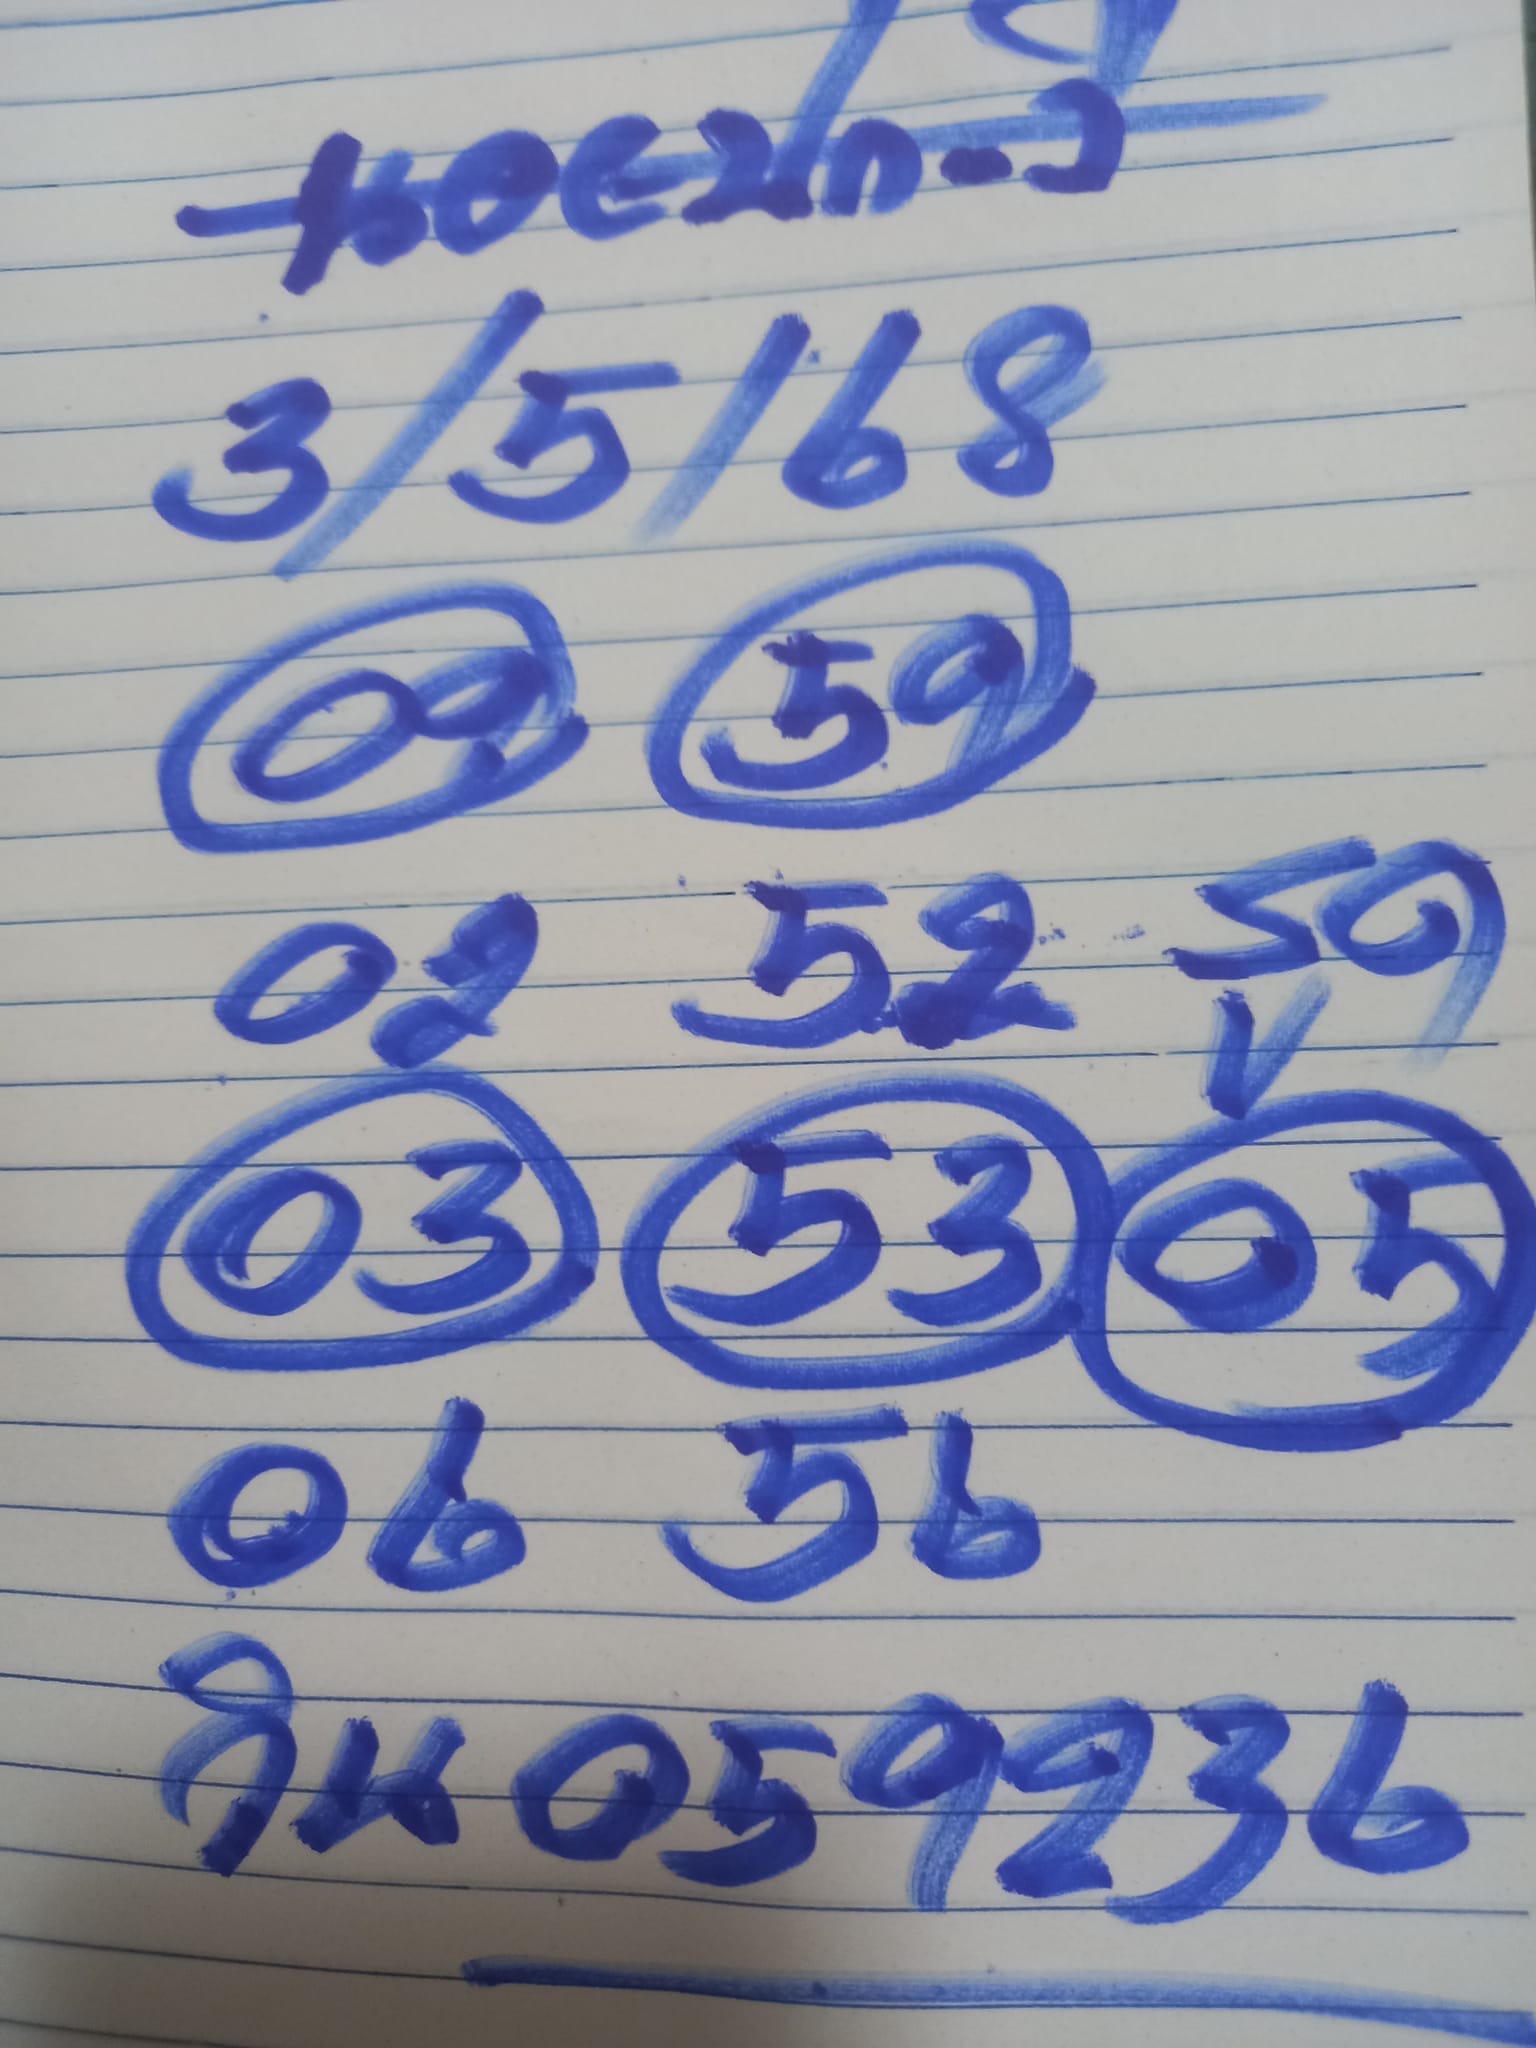 3/5/68
09 59
02 52 59
03 53 05
06 56
วิน 059236